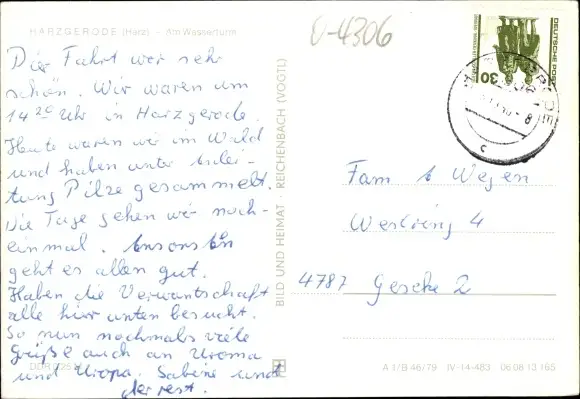 HARZGERODE (Harz) - Am Wasserturm
0-4306
Die Fahrt war sehr
schön. Wir waren um
14 20 Uhr in Harzgerode.
Heute waren wir im Wald
und haben unter Anlei-
tung Pilze gesammelt.
Die Tage gehen wir noch-
einmal. Ansonsten
geht es allen gut.
Haben die Verwantschaft
alle hier unten besucht.
So nun nochmals viele
Grüße auch an Uroma
und Uropa. Sabine und
der rest.
BILD UND HEIMAT · REICHENBACH (VOGTL)
DEUTSCHE POST
30
Fam
Westring 4
4787 Geseke 2
A 1/B 46/79 IV-14-483 06 08 13 165